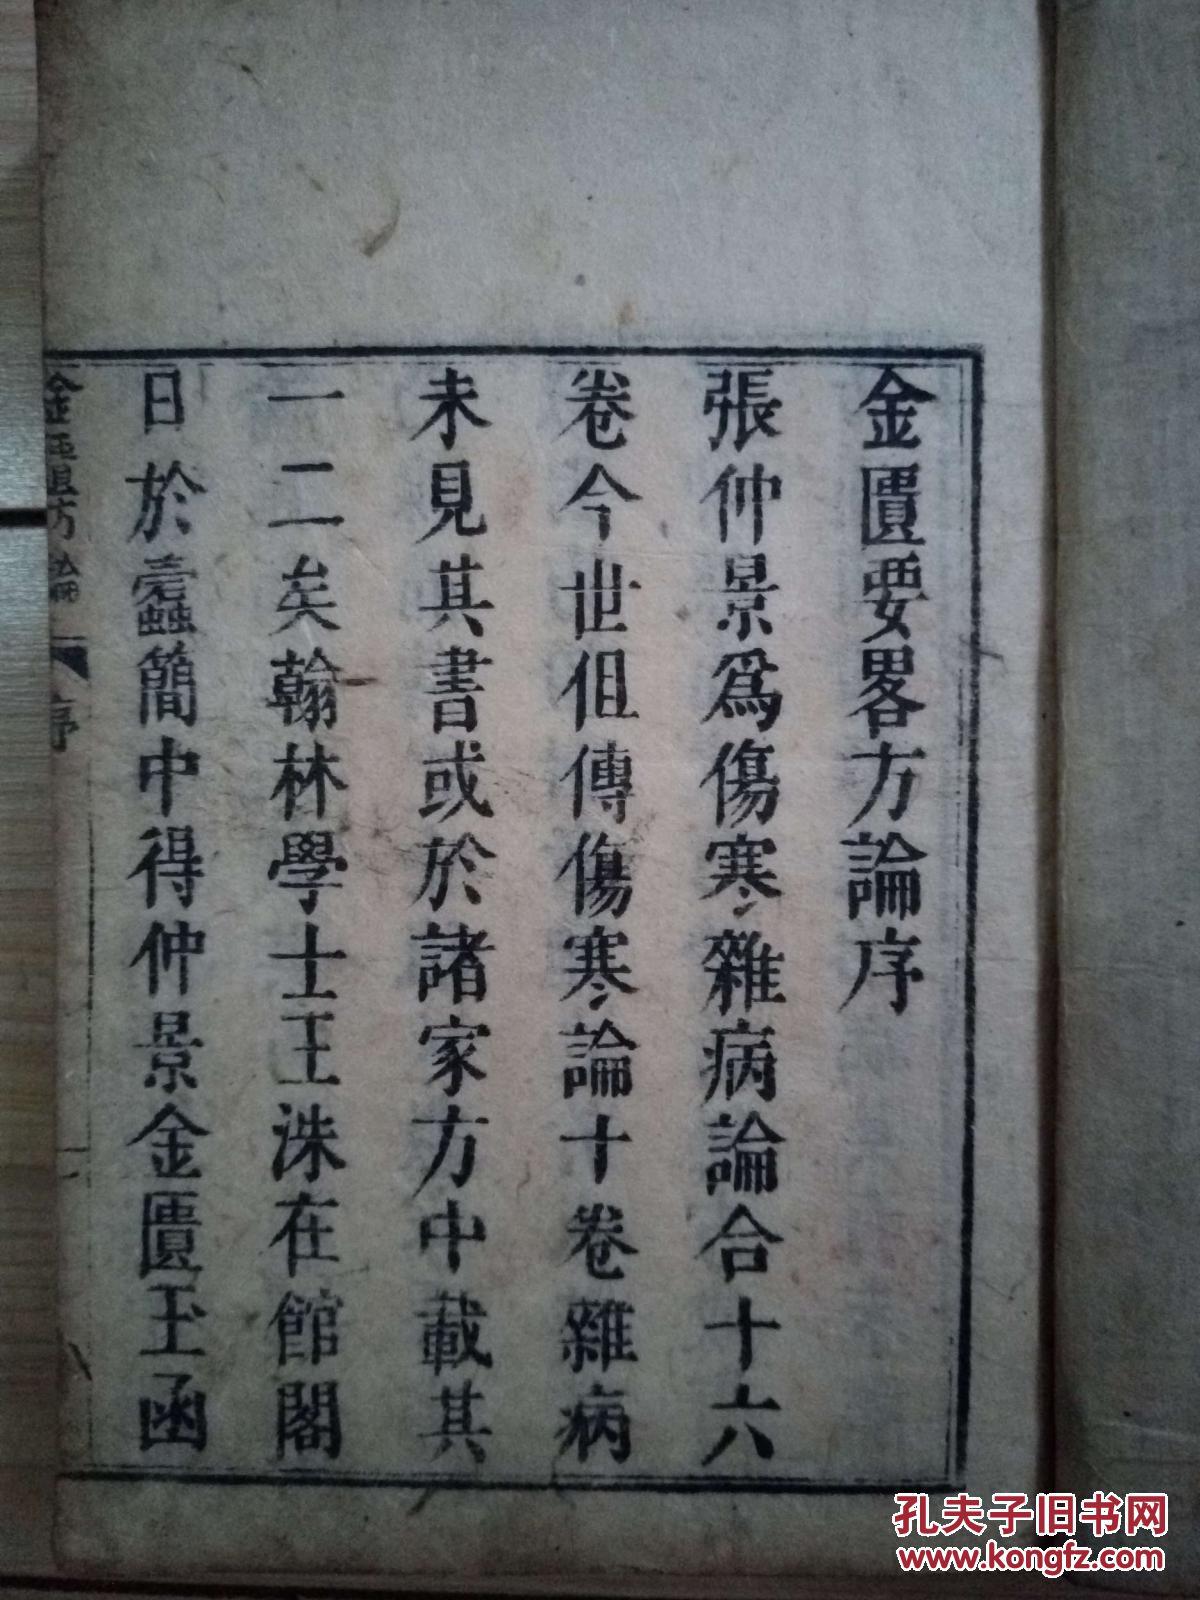 金匱要畧方論序
張仲景爲傷寒雜病論合十六
卷今世但傳傷寒論十卷雜病
未見其書或於諸家方中載其
一二矣翰林學士王洙在館閣
日於蠹簡中得仲景金匱玉函
金匱方論 序 一
孔夫子旧书网
www.kongfz.com